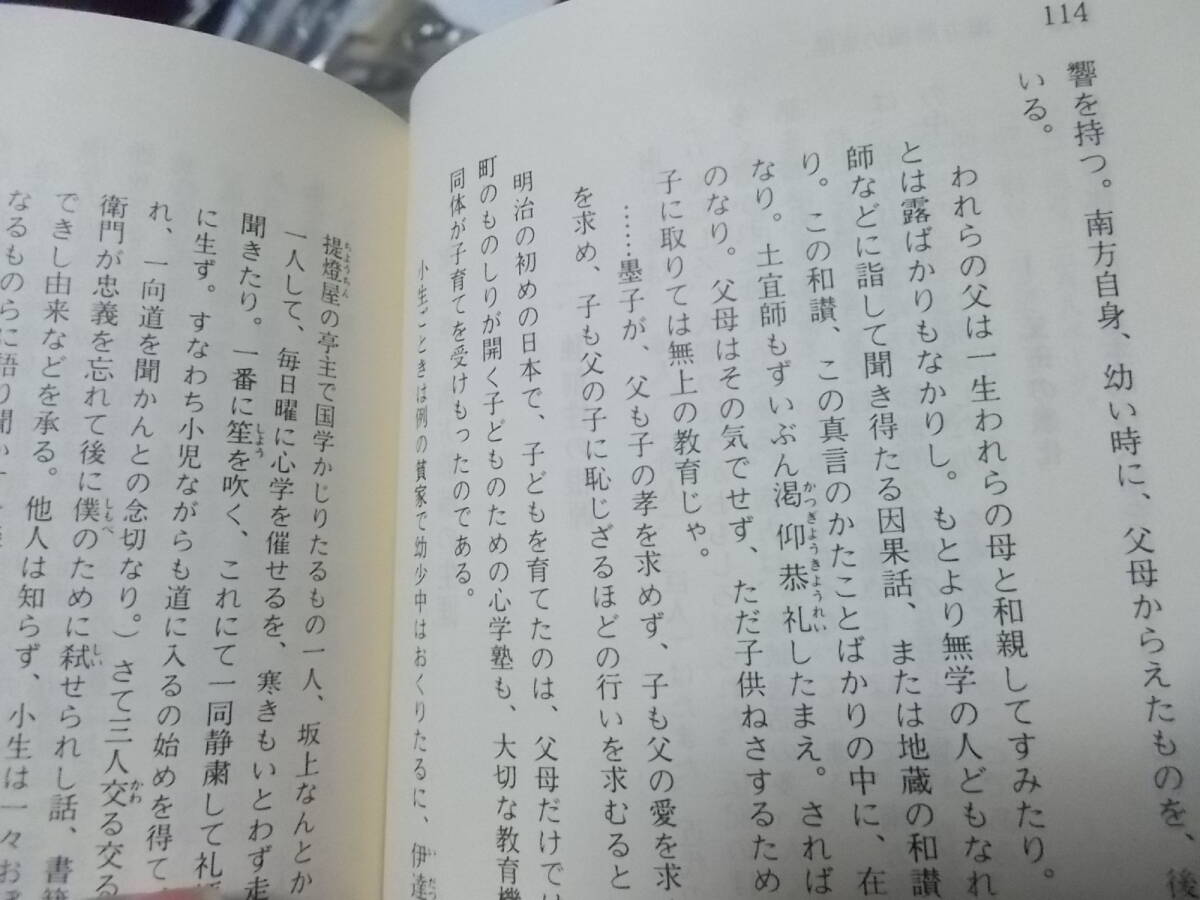 114
響を持つ。南方自身、幼い時に、父母からえたものを、後
いる。
われらの父は一生われらの母と和親してすみたり。
とは露ばかりもなかりし。もとより無学の人どもなれ
師などに詣して聞き得たる因果話、または地蔵の和讃
り。この和讃、この真言のかたことばかりの中に、在
なり。土宜師もずいぶん渇仰恭礼したまえ。されば
のなり。父母はその気でせず、ただ子供ねさするため
子に取りては無上の教育じゃ。
……墨子が、父も子の孝を求めず、子も父の愛を求
を求め、子も父の子に恥じざるほどの行いを求むると
明治の初めの日本で、子どもを育てたのは、父母だけで
町のものしりが開く子どものための心学塾も、大切な教育機
同体が子育てを受けもったのである。
小生ごときは例の貧家で幼少中はおくりたるに、伊達
提燈屋の亭主で国学かじりたるもの一人、坂上なんとか
一人して、毎日曜に心学を催せるを、寒きもいとわず走
聞きたり。一番に笙を吹く、これにて一同静粛して礼
に生ず。すなわち小児ながらも道に入るの始めを得て
れ、一向道を聞かんとの念切なり。）さて三人交る交る
衛門が忠義を忘れて後に僕のために弑せられし話、書
できし由来などを承る。他人は知らず、小生は一々お
なるものらに語り聞か